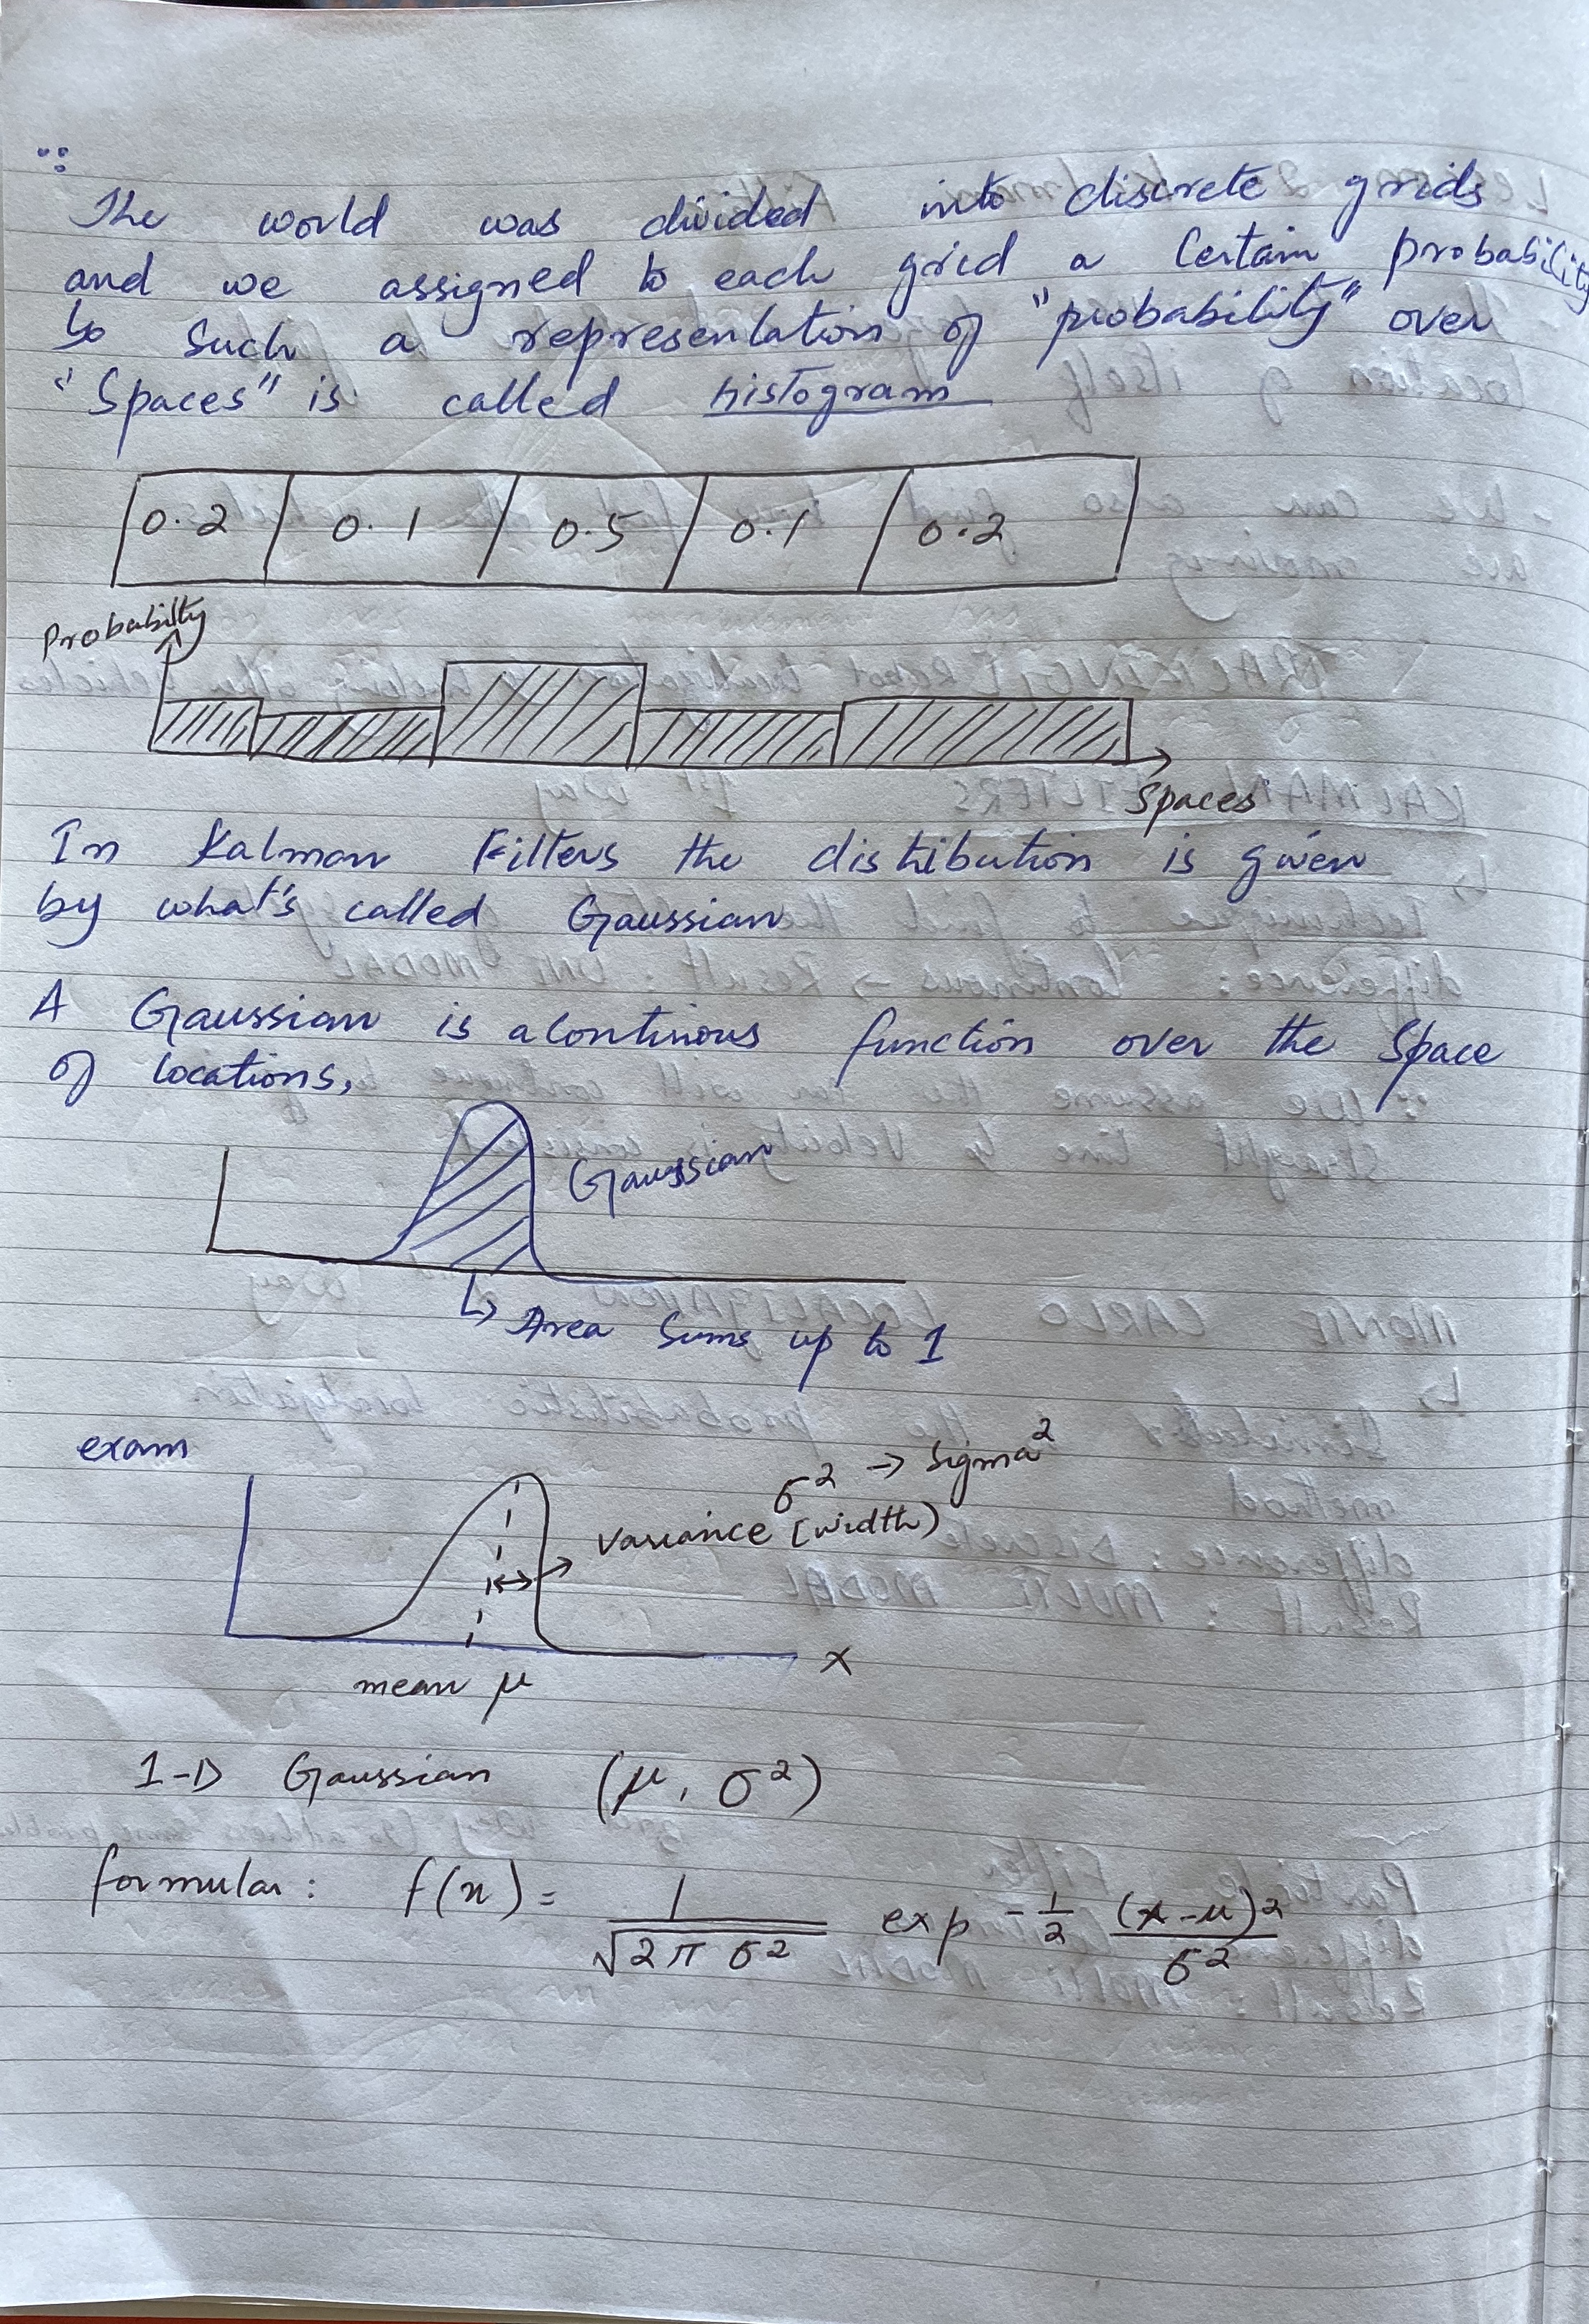 ∵
The world was divided into discrete grids
and we assigned to each grid a certain probability
↳ Such a representation of "probability" over
"Spaces" is called histogram
0.2 0.1 0.5 0.1 0.2
Probabilty
Spaces
In Kalman Filters the distibution is given
by what's called Gaussian
A Gaussian is a Continous function over the Space
of locations,
Gaussian
↳ Area Sums up to 1
exam
σ² → Sigma²
Variance (width)
x
mean μ
1-D Gaussian (μ, σ²)
formular: f(x) = 1/√2π σ² exp -1/2 (x-μ)²/σ²